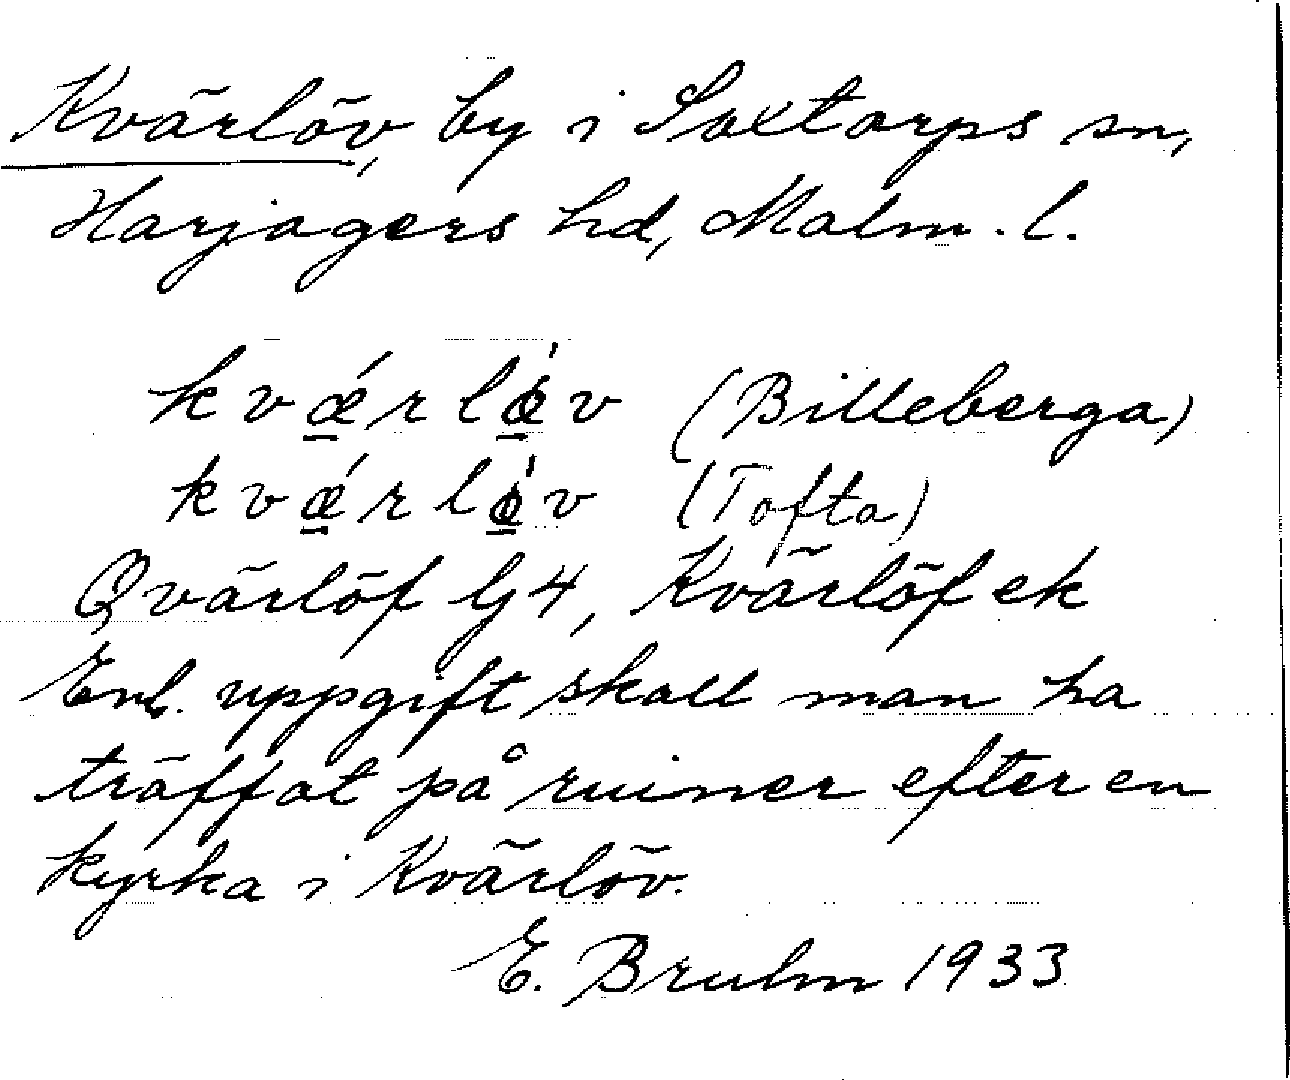 Kvärlöv, by i Saxtorps sn,
Harjagers hd, Malm. l.
kvǽrlø̀v (Billeberga)
kvǽrlø̀v (Tofta)
Qvärlöf Gj 4, Kvärlöf ek
Enl. uppgift skall man ha
träffat på ruiner efter en
kyrka i Kvärlöv.
E. Bruhn 1933